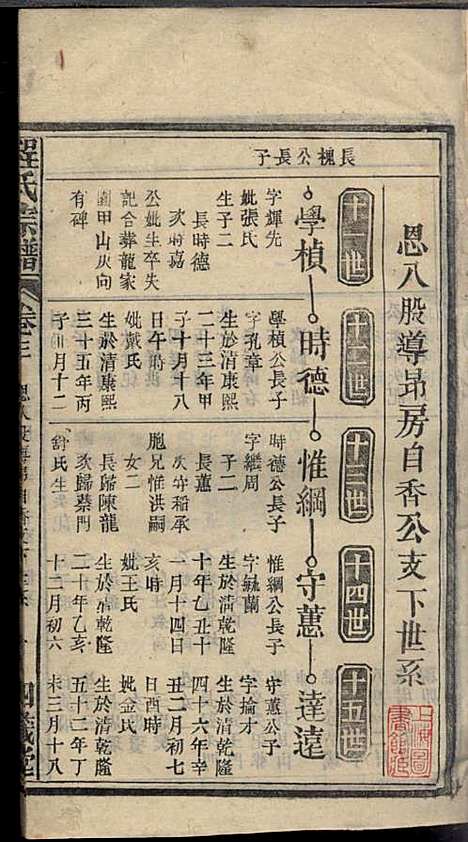 恩八股導昂房自香公支下世系
十一世
十二世
十三世
十四世
十五世
長槐公長子
學楨
時德
惟綱
守蕙
達遠
字輝先
妣張氏
生子二
長時德
次時嘉
公妣生卒失
記合葬龍家
甲山火向
有碑
學楨公長子
字孔章
生於清康熙
二十三年甲
子十月十八
日午時
妣戴氏
生於清康熙
三十五年丙
子 月十二
時德公長子
字繼周
子二
長蕙
次守稻承
胞兄惟洪嗣
女二
長歸陳龍
次歸蔡門
舒氏生
惟綱公長子
字毓蘭
生於清乾隆
十年乙丑十
一月十四日
亥時
妣王氏
生於清乾隆
二十年乙亥
十二月初六
守蕙公子
字掄才
生於清乾隆
四十六年辛
丑二月初七
日酉時
妣金氏
生於清乾隆
五十二年丁
未三月十八
程氏宗譜
卷三
恩八股導昂自香